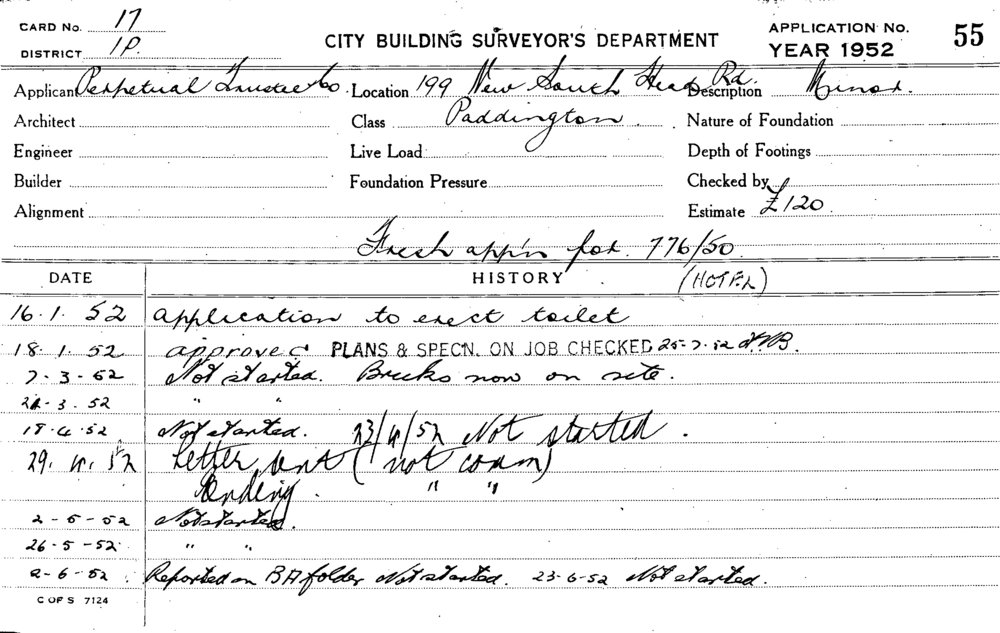 CARD No. 17
DISTRICT 1P.
CITY BUILDING SURVEYOR'S DEPARTMENT
APPLICATION No. 55
YEAR 1952
Applicant Perpetual Trustee Co. Location 199 New South Head Rd. Description Minor.
Architect Class Paddington Nature of Foundation
Engineer Live Load Depth of Footings
Builder Foundation Pressure Checked by
Alignment Estimate £120
Fresh app'n for 776/50
DATE HISTORY (HOTEL)
16.1.52 application to erect toilet
18.1.52 approved PLANS & SPECN. ON JOB CHECKED 25-7-52
7-3-52 Not started. Bricks now on site.
21-3.52 " "
18.4.52 Not started. 23/4/52 Not started.
29.4.52 Letter sent (not comm)
Ending. " "
2-5-52 Not started.
26-5-52 " "
2-6-52 Reported on BA folder Not started. 23-6-52 Not started.
C OF S 7124